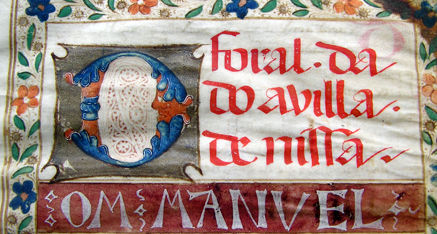 foral. da
do avilla.
de nissa.
DOM MANVEL